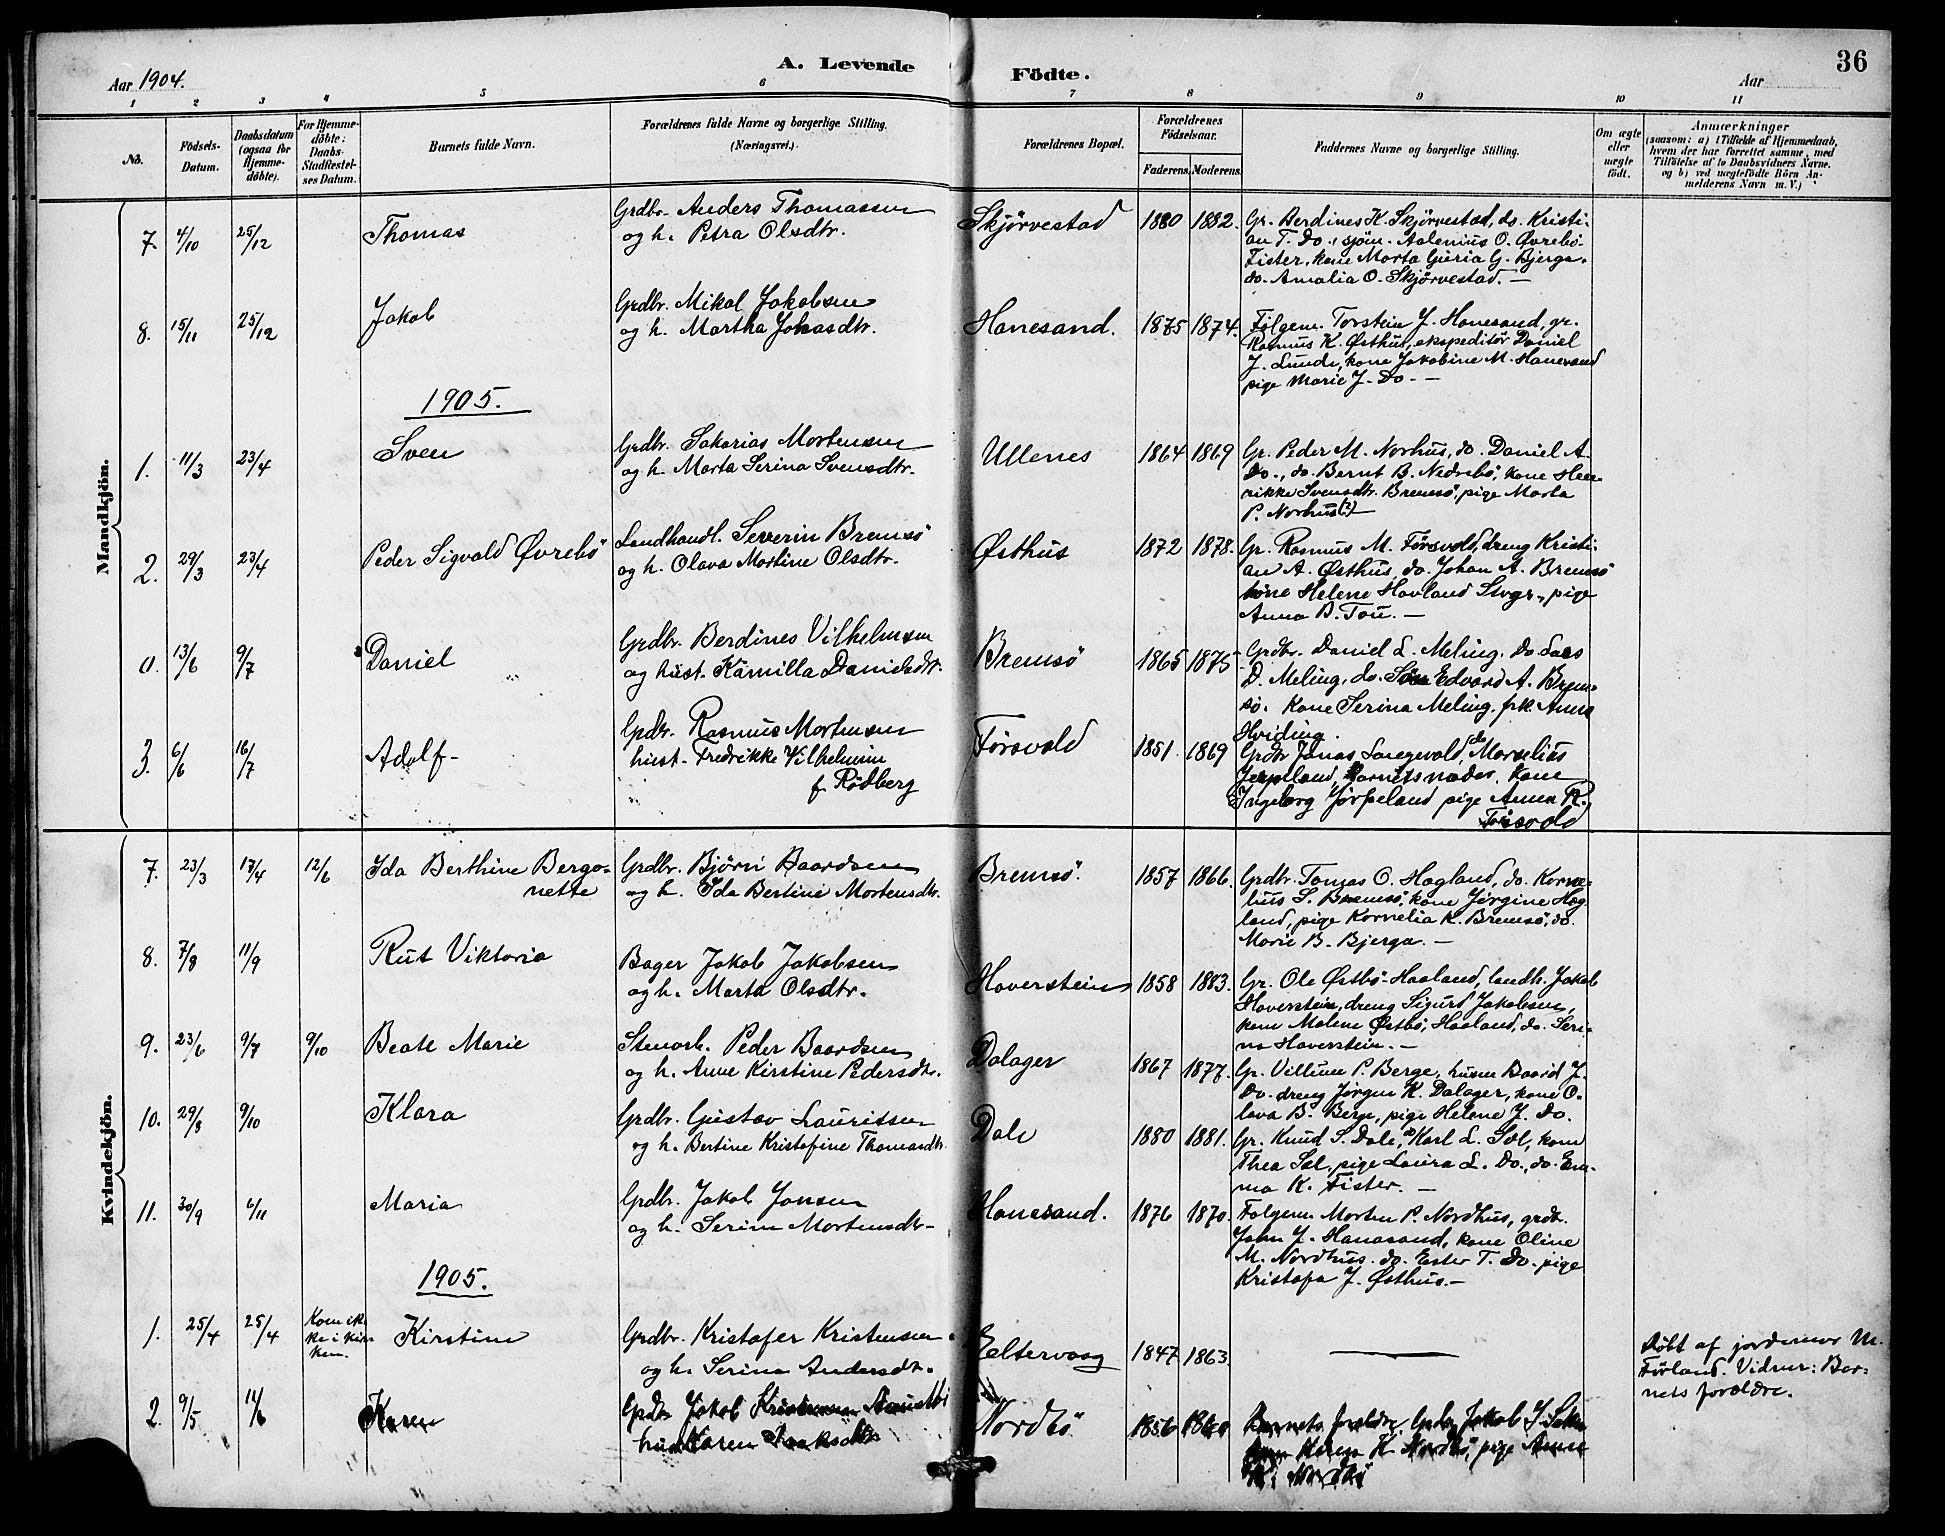 Aar 1904.
A. Levende Födte.
Aar
36
1 2 3 4 5 6 7 8 9 10 11
No.
Födsels-Datum.
Daabsdatum (ogsaa for Hjemme-döbte).
For Hjemme-döbte: Daabs-Stadfæstel-ses Datum.
Barnets fulde Navn.
Forældrenes fulde Navne og borgerlige Stilling. (Næringsvei.)
Forældrenes Bopæl.
Forældrenes Födselsaar.
Faderens. Moderens.
Faddernes Navne og borgerlige Stilling.
Om ægte eller uægte født.
Anmærkninger
(saasom: a) i Tilfælde af Hjemmedaab, hvem der har forrettet samme, med Tilføielse af to Daabsvidners Navne, og b) ved uægtefødte Börn An-melderens Navn m. V.)
Mandkjön.
7. 4/10 25/12 Thomas
Grdbr. Anders Thomassen
og h. Petra Olsdtr.
Skjørvestad 1880 1882.
Gr. Berdines K. Skjørvestad, do. Kristi-
an T. Do., sjøm. Aalenius O. Øvrebø
Fister, kone Marta Guria G. Bjerga,
do. Amalia O. Skjørvestad. —
8. 15/11 25/12 Jakob
Grdbr. Mikal Jakobsen
og h. Martha Johasdtr.
Hanesand. 1875 1874.
Følgem. Torstein J. Hanesand, gr.
Rasmus K. Østhus, ekspeditør Daniel
J. Lunde, kone Jakobine M. Hanesand
pige Marie J. Do. —
1905.
1. 11/3 23/4 Sven
Grdbr. Sakarias Mortensen
og h. Marta Serina Svensdtr.
Ullenes 1864 1869
Gr. Peder M. Norhus, do. Daniel A.
Do., do. Bernt B. Nedrebø, kone Hen-
rikke Svensdtr. Bremsø, pige Marta
P. Norhus (?)
2. 29/3 23/4 Peder Sigvald Øvrebö
Landhandl. Severin Bremsö
og h. Olava Martine Olsdtr.
Østhus 1872 1878.
Gr. Rasmus M. Førsvold, dreng Kristi-
an A. Østhus, do. Johan A. Bremsø
kone Helene Havland Stvgr., pige
Anna B. Tou. —
0. 13/6 9/7 Daniel
Grdbr. Berdines Vilhelmsen
og hust. Kamilla Danielsdt.
Bremsö 1865 1875
Grdbr. Daniel L. Meling, do Lars
D. Meling, do. Edvard A. Brem-
sø. Kone Serina Meling, frk. Anna
Hviding.
3. 6/6 16/7 Adolf
Grdbr. Rasmus Mortensen
hust. Fredrikke Vilhelmine
f. Rödberg
Førsvold 1851 1869
Grdbr Jonas Langevold, do Marselius
Jørpeland, Barnets moder, kone
Ingeborg Jørpeland pige Anna R.
Førsvold
Kvindekjön.
7. 23/3 17/4 12/6 Ida Berthine Bergo-
nette
Grdbr. Bjørn Baardsen
og h. Ida Bertine Mortensdtr.
Bremsö. 1857 1866.
Grdbr. Tomas O. Hagland, do. Korne-
lius S. Bremsø, kone Jørgine Hag
land, pige Kornelia K. Bremsø, do.
Marie B. Bjerga. —
8. 7/8 11/9 Rut Viktoria
Bager Jakob Jakobsen
og h. Marta Olsdtr.
Haverstein 1858 1883.
Gr. Ole Østbø Haaland, landh. Jakob
Haverstein, dreng Sigurd Jakobsen,
kone Malene Østbø, Haaland, do. Seri-
na Haverstein. —
9. 23/6 9/7 9/10 Beate Marie
Stenarb. Peder Baardsen
og h. Anne Kirstine Pedersdtr.
Dalager 1867 1877.
Gr. Villum P. Berge, husm Baard J.
Do. dreng Jørgen K. Dalager, kone O-
lava B. Berge, pige Helene J. Do.
10. 29/8 9/10 Klara
Grdbr. Gustav Lauritsen
og h. Bertine Kristofine Thomasdtr.
Dale 1880 1881.
Gr. Knud S. Dale, do Karl L. Sel, kone
Thea Sel, pige Laura L. Do., do. Em-
ma K. Fister. —
11. 30/9 6/11 Maria
Grdbr. Jakob Jonsen
og h. Serine Mortensdtr
Hanesand. 1876 1870.
Følgem. Morten P. Nordhus, grdb.
John J. Hanasand, kone Oline
M. Nordhus. do. Ester T. Do. pige
Kristofa J. Østhus. —
1905.
1. 25/4 25/4 Kom ik-
ke i kir-
ken. Kirstine
Grdbr. Kristofer Kristensen
og h. Serina Andersdtr.
Eltervaag 1847 1863.
Døbt af jordemor M.
Førland. Vidner: Bar-
nets forældre.
2. 9/5 11/6 Karen
Grdbr Jakob
hust Karen Isaksdtr
Nordbö 1856 1860
Barnets forældre, Grdbr Jakob J.
Karen K. Nordbø, pige Anna
K. Nordbø